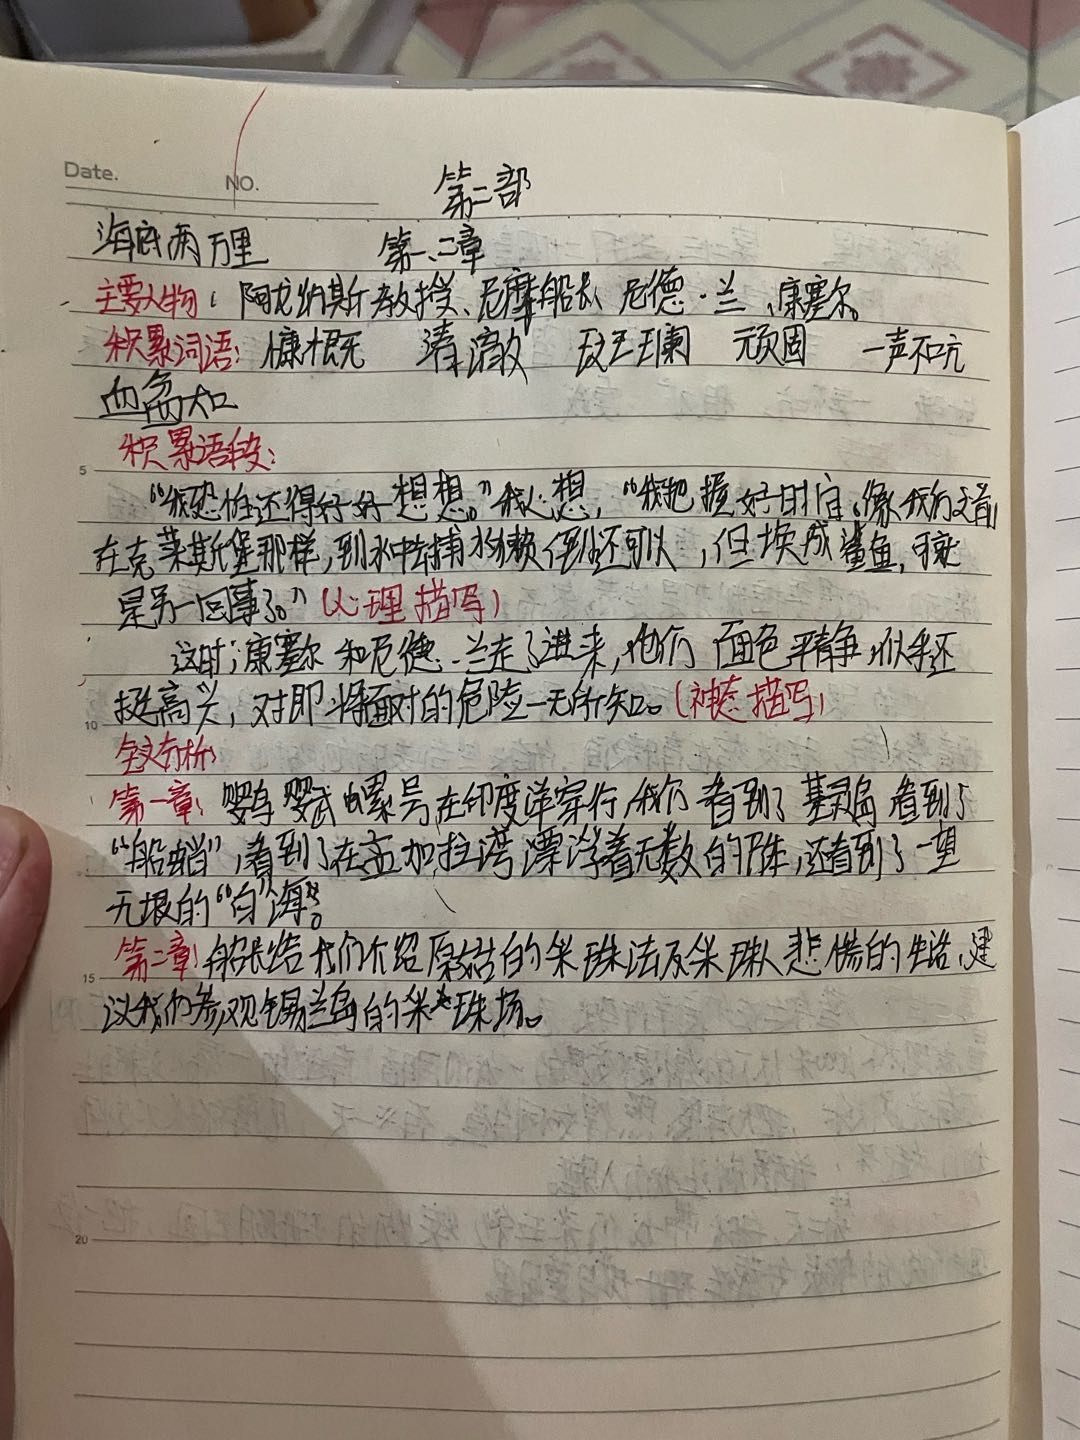 Date.
NO.
第二部
海底两万里 第一、二章
主要人物：阿龙纳斯教授、尼摩船长、尼德·兰、康塞尔。
积累词语：慷慨 清澈 斑斓 顽固 一声不吭
血盆大口
5
积累语段：
“我恐怕还得好好想想。”我心想，“我把握好时宜，像我们之前
在克莱斯堡那样，到水中去捕水獭倒还可以，但换成鲨鱼，可就
是另一回事了。”（心理描写）
这时；康塞尔和尼德·兰走了进来，他们面色平静，似乎还
挺高兴，对即将面对的危险一无所知。（神态描写）
10
全文分析：
第一章：鹦鹉螺号在印度洋穿行，我们看到了基灵岛看到了
“船蛸”，看到了在孟加拉湾漂浮着无数的尸体，还看到了一望
无垠的“白”海。
第二章：船长给我们介绍原始的采珠法及采珠人悲惨的生活，建
15
议我们参观锡兰岛的采珠场。
20